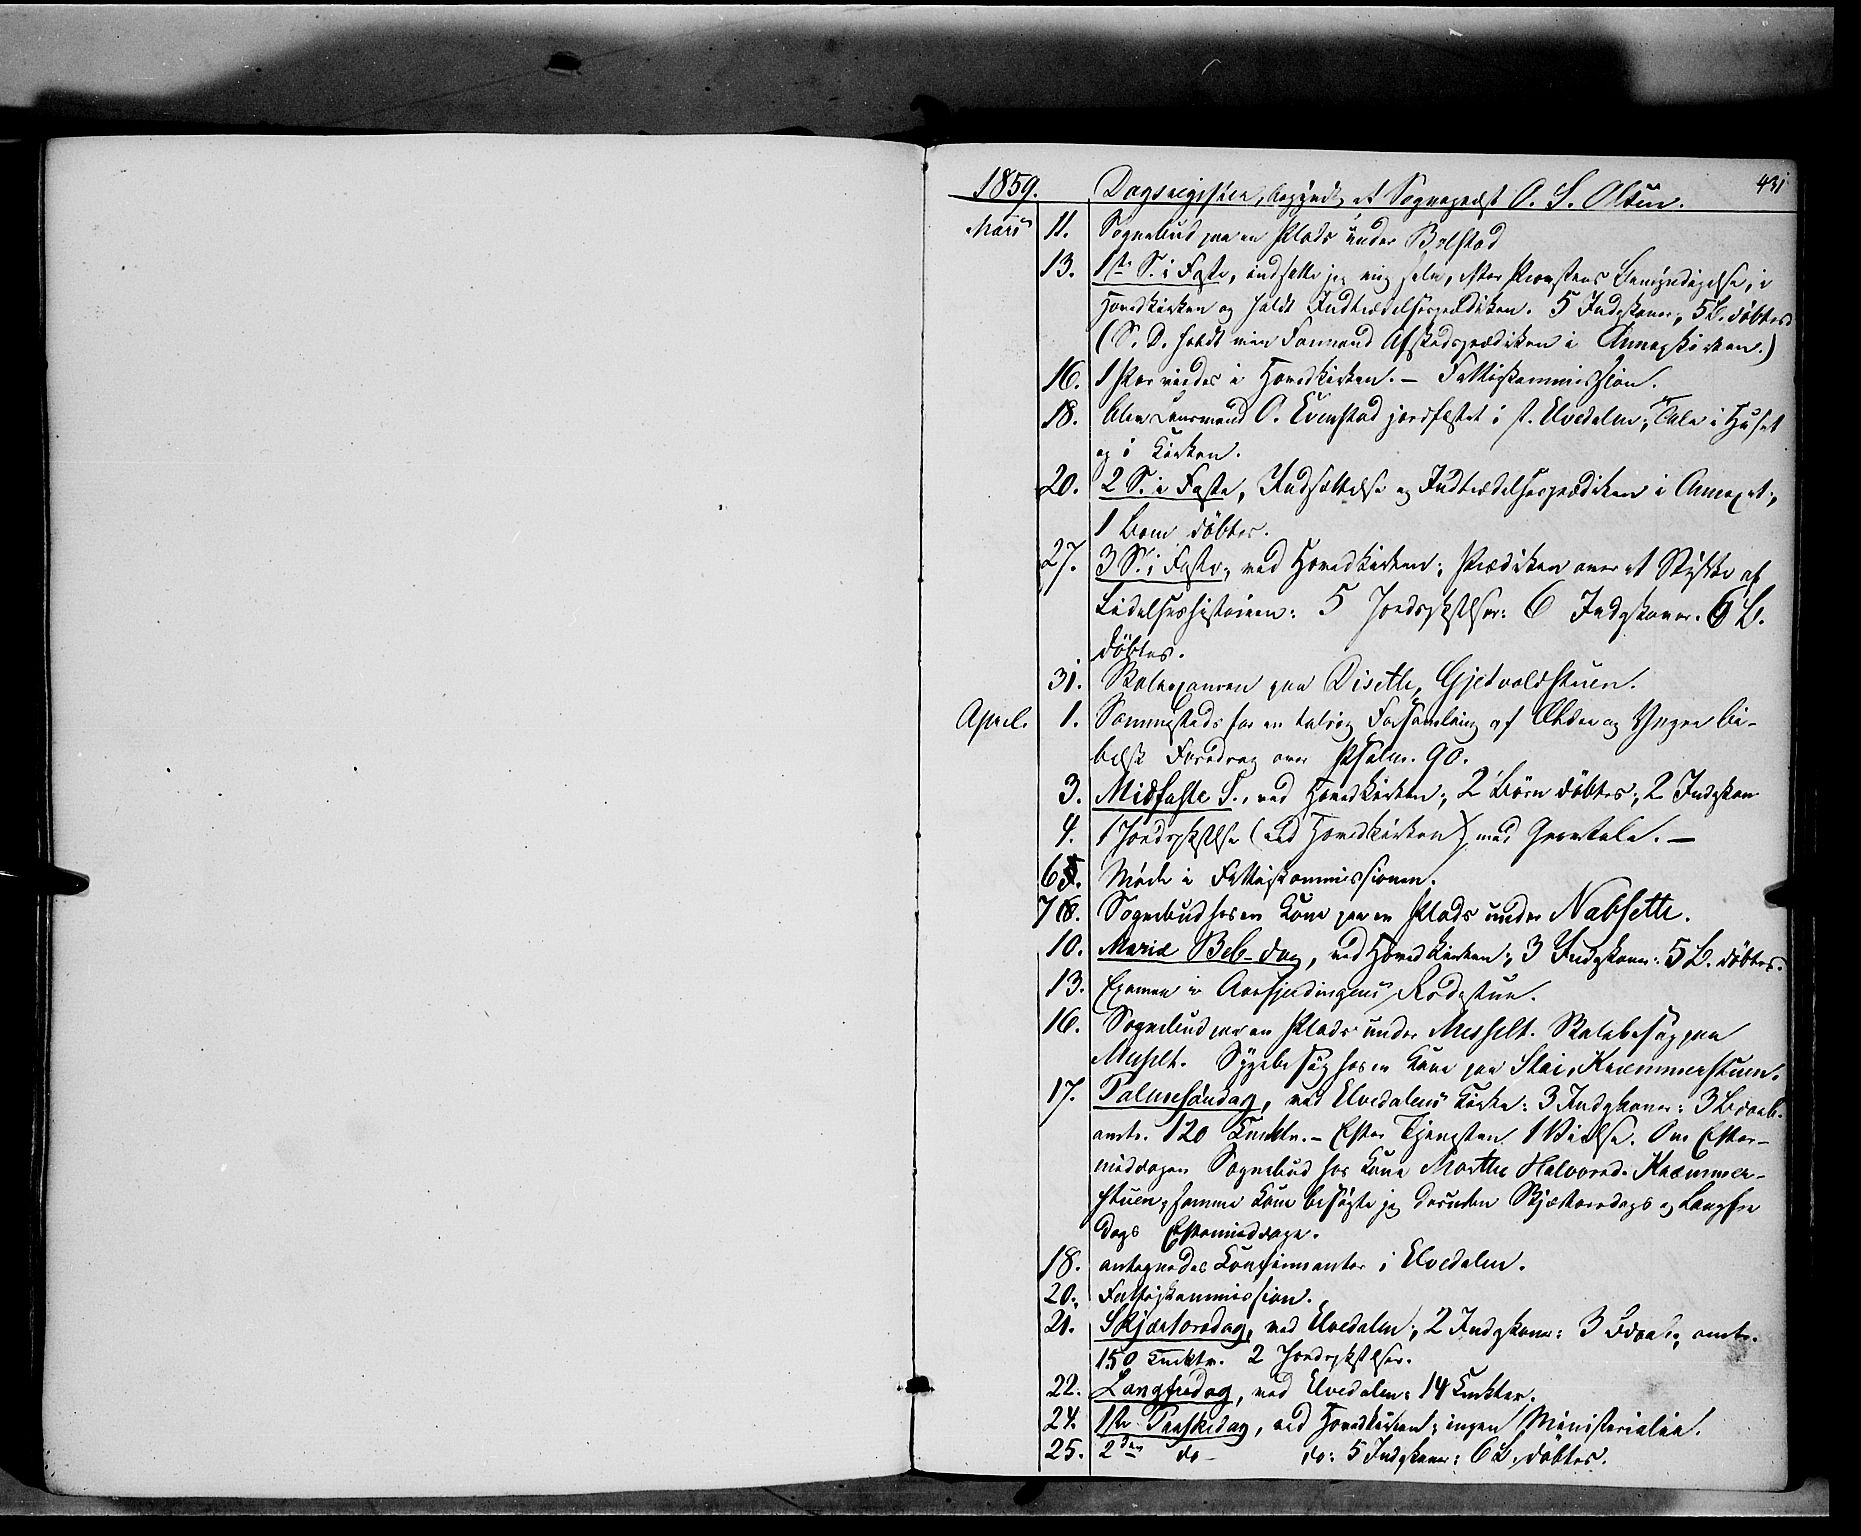 431
1859. Dagsregister, begyndt af Sogneprest O. S. Olsen.
Marts 11. Sognebud paa en Plads under Bolstad
13. 1ste S. i Faste, indsatte jeg mig selv, efter Provstens Bemyndigelse, i
Hovedkirken og holdt Indtrædelsesprædiken. 5 Indgkoner, 5 B. döbtes
(S. D. holdt min Formand Afskedsprædiken i Annexkirken.)
16. 1 Par viedes i Hovedkirken. – Fattigkommission.
18. blev Lensmand O. Evenstad jordfæstet i st. Elvedalen; Tale i Huset
og i Kirken.
20. 2 S. i Faste, Indsættelse og Indtrædelsesprædiken i Annexet;
1 Barn döbtes.
27. 3 S. i Faste, ved Hovedkirken; Prædiken over et Stykke af
Lidelseshistorien: 5 Jordspkstelser: 6 Indgkoner. 6 B.
döbtes.
31. Skoleexamen paa Disetle, Gjetvoldstuen.
April. 1. Sammesteds for en talrig Forsamling af Ældre og Yngre bi-
belsk Foredrag over Psalm. 90.
3. Midfaste S., ved Hovedkirken; 2 Börn döbtes; 2 Indgkon
4. 1 Jordspkstelse (ved Hovedkirken) med Gravtale. –
6. Möde i Fattigkommissionen.
7. Sognebud hos en Kone paa en Plads under Nabsetle.
10. Mariæ Beb. dag, ved Hovedkirken; 3 Indgkoner: 5 B. döbtes.
13. Examen i Aasfjerdingens Rodestue.
16. Sognebud paa en Plads under Messelt. Skolebesög paa
Messelt. Sygebesög hos en Kone paa Stai, Kræmmerstuen.
17. Palmesöndag, ved Elvedalens Kirke: 3 Indgkoner: 3 Bdaab.
omtr. 120 Cmktr. – Efter Tjenesten 1 Vielse. Om Efter-
middagen Sognebud hos Kone Marthe Halvorsd. Kræmmer-
stuen; samme Kone besögte jeg desuden Skjærtorsdags og Langfre
dags Eftermiddage.
18. antegnedes Konfirmanter i Elvedalen.
20. Fattigkommission.
21. Skjærtorsdag, ved Elvedalen; 2 Indgkoner: 3 Bdaab; omtr.
150 Cmktr. 2 Jordspkstelser.
22. Langfredag, ved Elvedalen: 14 Cmkter.
24. 1ste Paaskedag, ved Hovedkirken; ingen Ministerialia.
25. 2den do do: 5 Indgkoner: 6 B. döbtes.